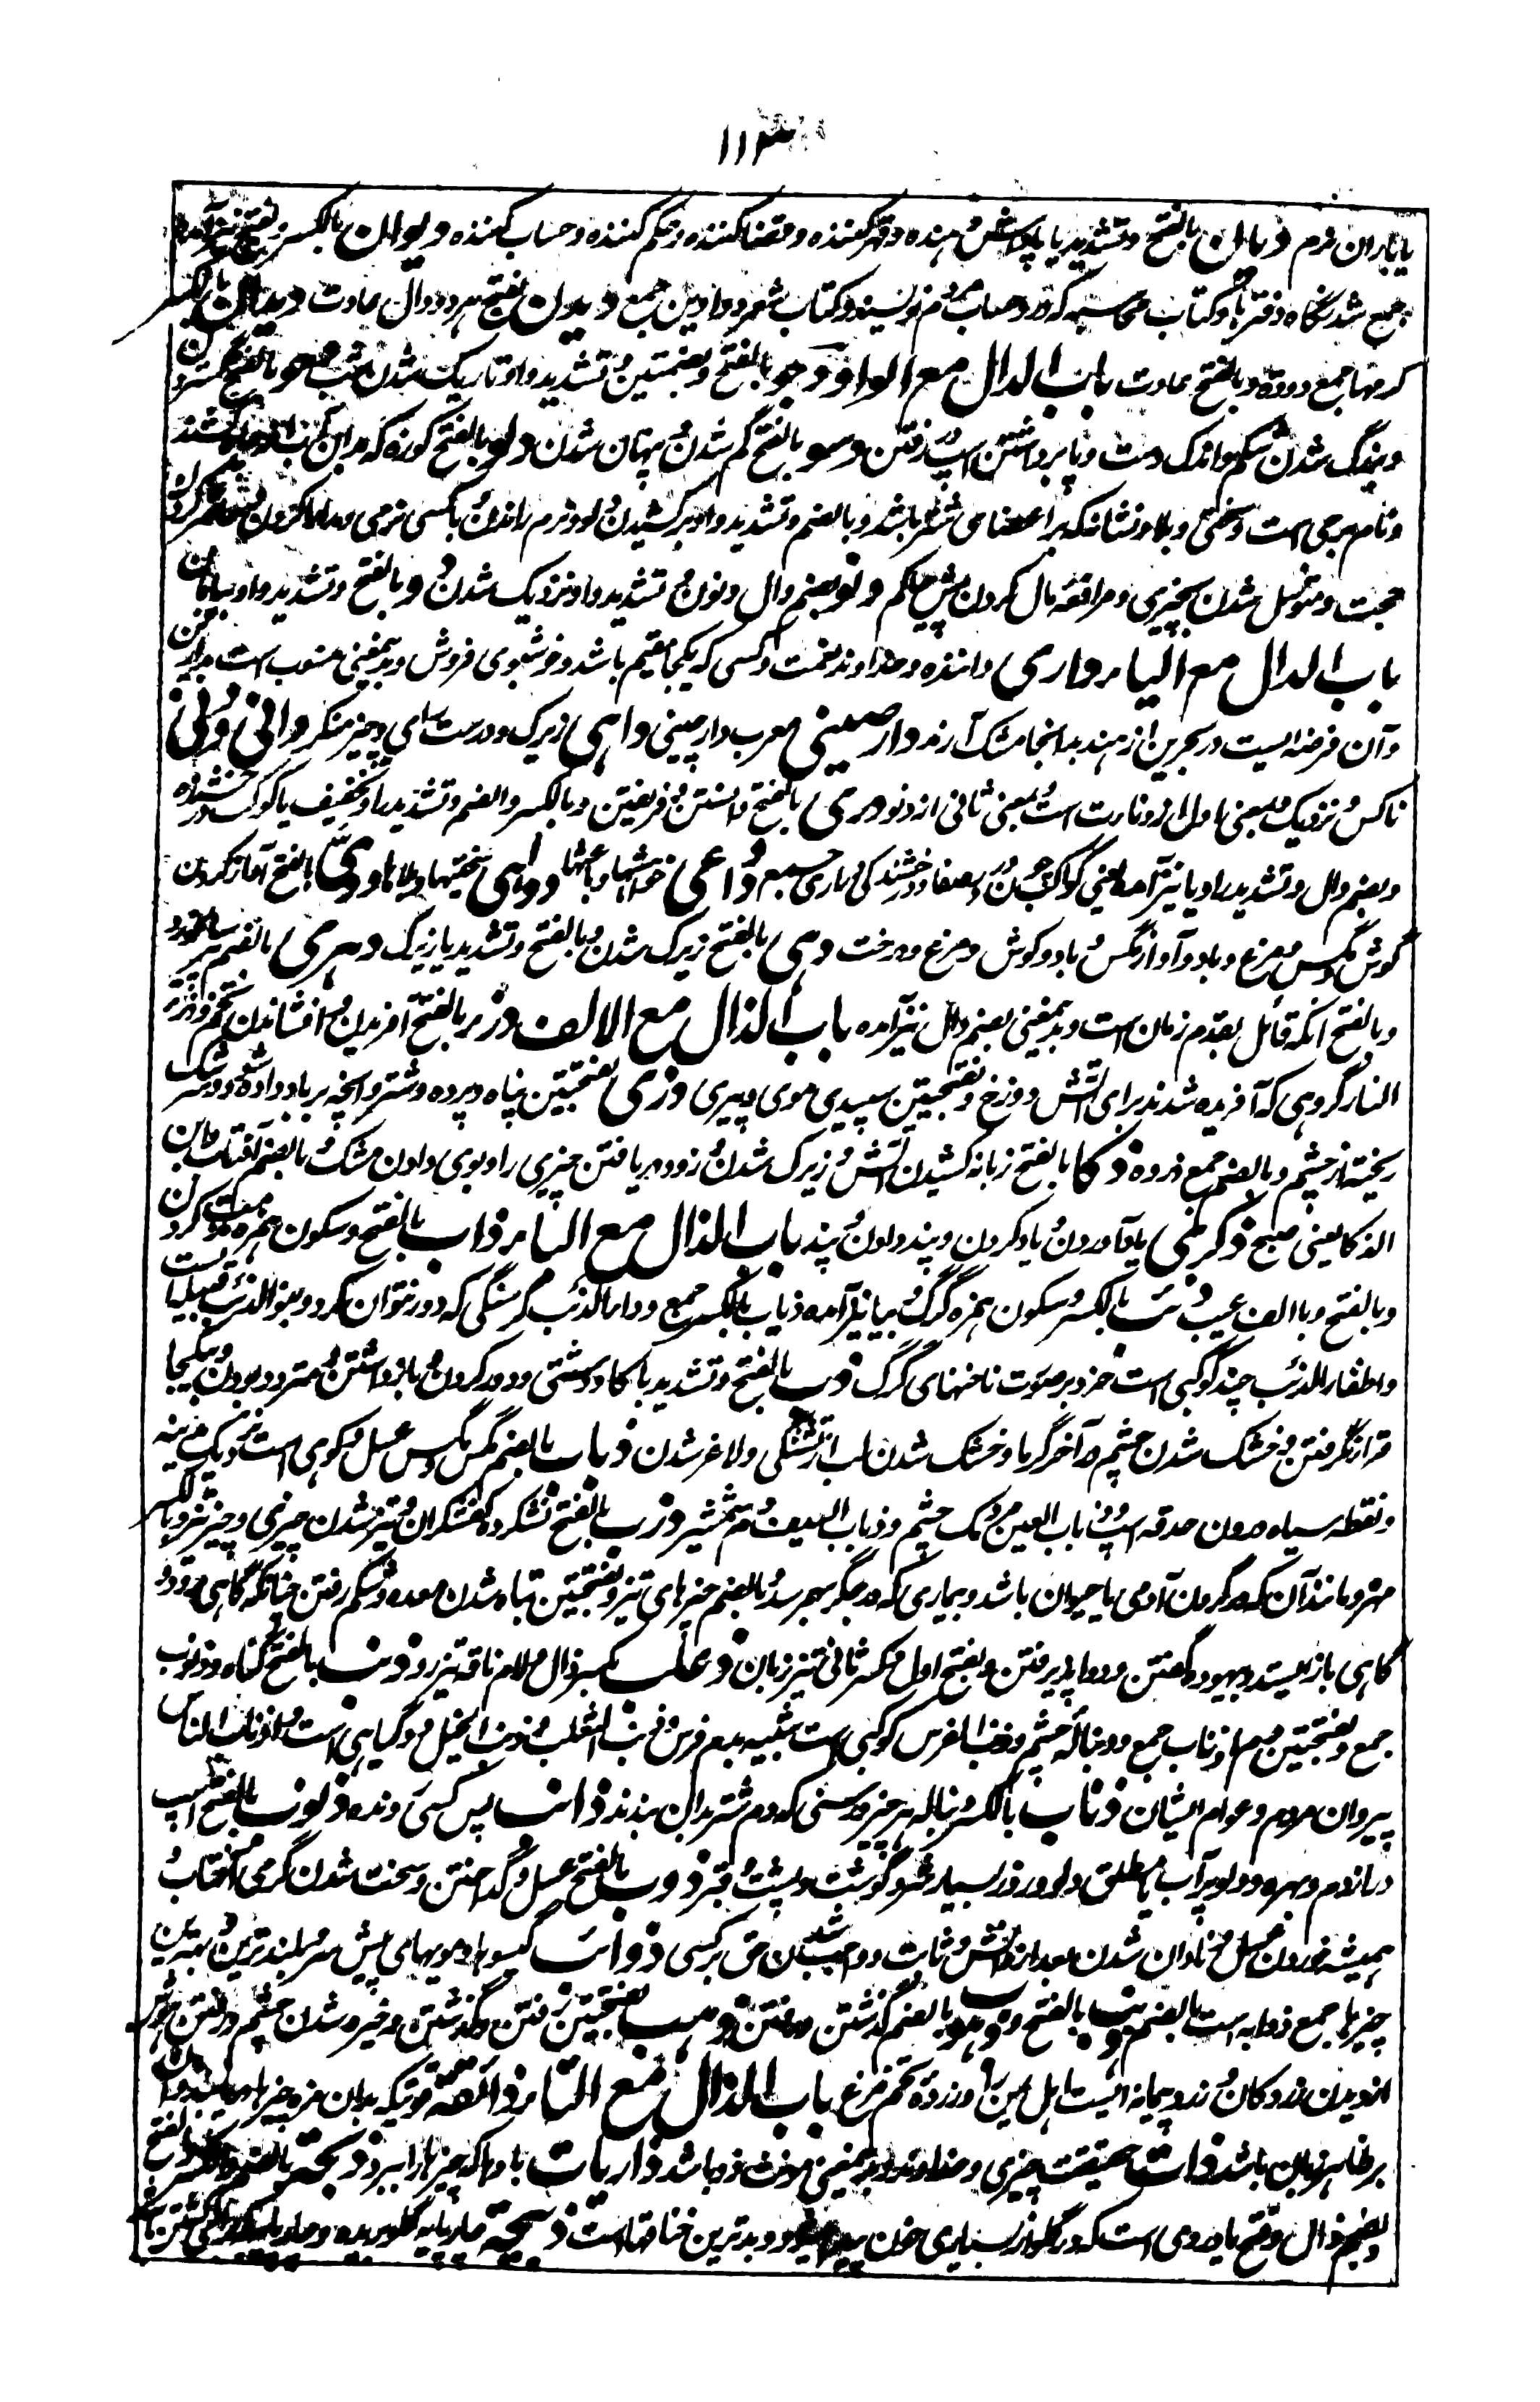 ۱۱۳
یا باران نرم دیان بالفتح و تشدید یا پاداش دهنده و قهر کننده و قضا کننده و حکم کننده و حساب کننده دیوان بالکسر و بفتح نیز آمده
جمع شدنگاه دفترها و کتاب محاسبه که در و حساب مردم نویسند و کتاب شعر دواوین جمع دیدان بفتح هر دو دال عادت دیدان بالکسر
کرمها جمع دوده و بالفتح عادت باب الدال مع الواو دجو بالفتح و بضمتین و تشدید واو تاریک شدن شب دحو بالفتح گستردن
و بزرگ شدن شکم و اندک دست و پا برداشتن اسپ در رفتن دسو بالفتح گم شدن و پنهان شدن دلو بالفتح کوزه که بدان آب کشند
و نام برجی است و سختی و بلا و نشانکه بر اعضای شتر باشد و بالضم و تشدید واو برکشیدن دلو و نرم راندن و با کسی نرمی و مدارا کردن
حجت و متوسل شدن بچیزی و مرافعه مال کردن پیش حاکم دنو بضم دال و نون و تشدید واو نزدیک شدن دو بالفتح و تشدید واو بیابان
باب الدال مع الیا داری داننده و خداوند نعمت و کسی که یکجا مقیم باشد و خوشبوی فروش و بدینمعنی منسوب است بدارین
و آن فرضه ایست در بحرین از هند بدانجا مشک آرند دارصینی معرب دار چینی داهی زیرک و درست رای و چیز منکر دانی و دنی
ناکس و نزدیک و بمعنی اول از دنارت است و بمعنی ثانی از دنو دری بالفتح دانستن و فریفتن و بالکسر و الضم و تشدید را و تخفیف یا کوکب درخشنده
و بضم دال و تشدید را و یا نیز آمده یعنی کوکبی چون در در صفا و درخشندگی دراری جمع دواعی خواهشها و باعثها دواهی سختیها و بلاها دوی بالفتح آواز کردن
گوش و مگس و مرغ و باد و آواز مگس و باد و گوش و مرغ و درخت دهی بالفتح زیرک شدن و بالفتح و تشدید یا زیرک دهری بالضم پیر سالخورد
و بالفتح انکه قائل بقدم زمان است و بدینمعنی بضم دال نیز آمده باب الذال مع الالف ذرء بالفتح آفریدن و افشاندن تخم و ذرء
النار گروهی که آفریده شدند برای آتش دوزخ و بفتحتین سپیدی موی و پیری ذری بفتحتین پناه و پرده و شتر و انچه بر باد داده شود و سرشک
ریخته از چشم و بالضم جمع ذروه ذکا بالفتح زبانه کشیدن آتش و زیرک شدن و زود دریافتن چیزی را و بوی دادن مشک و بالضم آفتاب و ابن
الذکا یعنی صبح ذکری یاد آوردن و یاد کردن و پند دادن و پند باب الذال مع البا ذاب بالفتح و سکون همزه عیب کردن
و بالفتح و با الف عیب ذئب بالکسر و سکون همزه گرگ و بیا نیز آمده ذیاب بالکسر جمع و داء الذئب گرسنگی که دور نتوان کرد و بنو الذئب قبیله ایست
و اظفار الذئب چند کوکبی است خرد بر صورت ناخنهای گرگ ذب بالفتح و تشدید با گاو دشتی و دور کردن و باز داشتن و متردد بودن و بیکجا
قرار نگرفتن و خشک شدن چشم در آخر گرما و خشک شدن لب از تشنگی و لاغر شدن ذباب بالضم مگس و مگس عسل و کوهی است نزدیک مدینه
و نقطه سیاه درون حدقه اسپ و ذباب العین مردمک چشم و ذباب السیف دم شمشیر ذرب بالفتح نشکرده کفشگران و تیز شدن چیزی و چیز تیز و بالکسر
مهره مانند آن که در گردن آدمی یا حیوان باشد و بیماری که در جگر بهم رسد و بالضم چیزهای تیز و بفتحتین تباه شدن معده و شکم رفتن چنانکه گاهی رود و
گاهی باز ایستد و بیهوده گفتن و دوا پذیرفتن و بفتح اول و کسر ثانی تیز زبان ذعلب بکسر ذال و لام ناقه تیز رو ذنب بالفتح گناه ذنوب
جمع و بفتحتین دم اذناب جمع و دنباله چشم و ذنب الفرس کوکبی است شبیه بدم فرس و ذنب الثعلب و ذنب الخیل دو گیاهی است و اذناب الناس
پیروان مردم و عوام ایشان ذناب بالکسر دنباله هر چیز و رسنی که دم شتر بدان بندند ذانب پس کسی رونده ذنوب بالفتح اسپ
دراز دم و بهره و دلو پر آب یا مطلق دلو و روز بسیار شر و گوشت و پشت و قبر ذوب بالفتح عسل و گداختن و سخت شدن گرمی آفتاب و
همیشه خوردن عسل و نادان شدن بعد از دانش و ثابت و واجب شدن حق بر کسی ذوائب گیسوها و مویهای پیش سر و بلندترین و بهترین
چیزها جمع ذوابه است بالضم ذهوب بالفتح رونده و بالضم گذشتن و رفتن ذهب بفتحتین رفتن و گذشتن و خیره شدن چشم و رفتن هوش
از دیدن زر و کان زر و پیمانه ایست اهل یمن را و زرده تخم مرغ باب الذال مع التا ذائقه قوتیکه بدان مزه چیزها دریابند و آن
بر ظاهر زبان باشد ذات حقیقت چیزی و خداوند و بدینمعنی مونث ذو باشد ذاریات بادها که چیزها را ببرد ذبحه بالضم و بالکسر و بالفتح
و بضم ذال و فتح با دردی است که در گلو از بسیاری خون پیدا میشود و بدترین خناقهاست ذبیحه چارپایه گلو بریده